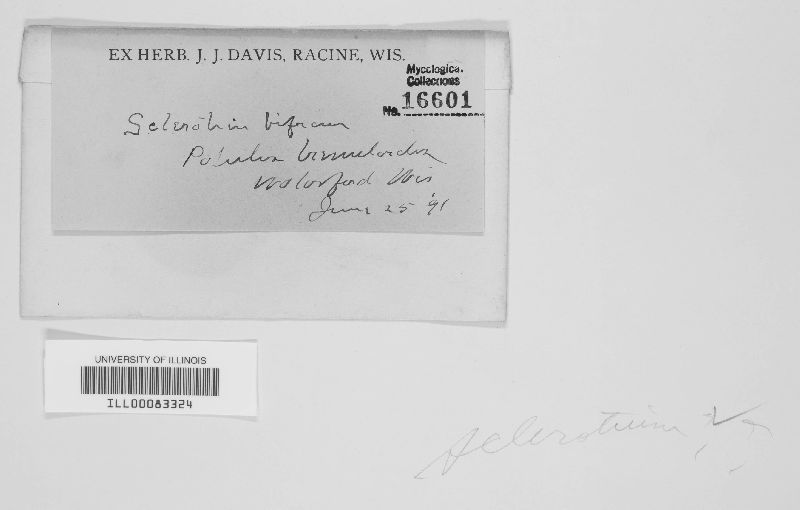 EX HERB. J. J. DAVIS, RACINE, WIS.
Mycological
Collections
No. 16601
Sclerotium bifrons
Populus tremuloides
Waterford Wis
June 25 '91
UNIVERSITY OF ILLINOIS
ILL00083324
Sclerotium